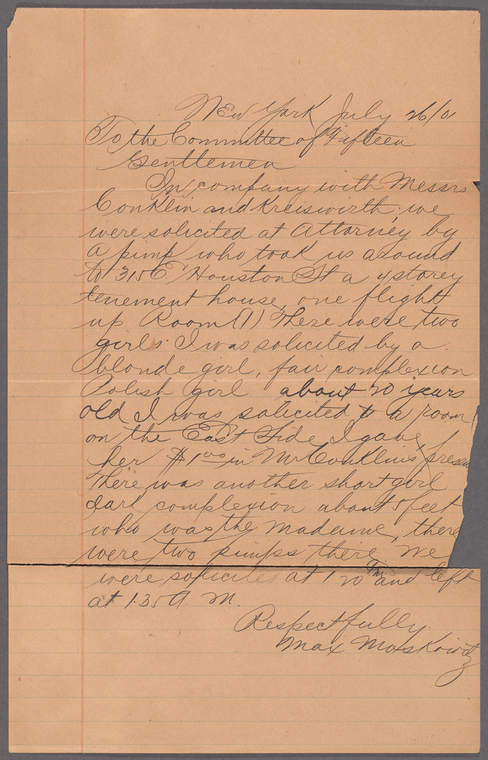 New York July 26/01
To the Committee of Fifteen
Gentlemen
In company with Messrs
Conklin and Kreiswirth, we
were solicited at Attorney by
a pimp who took us around
to 315 E Houston St a 4 storey
tenement house, one flight
up Room (1) There were two
girls. I was solicited by a
blonde girl, fair complexion
Polish girl about 20 years
old I was solicited to a room
on the East Side I gave
her $1 00 in Mr Conklins
There was another short girl
dark complexion about 5 feet
who was the Madame, there
were two pimps there We
were solicited at 1 20 AM and left
at 1.35 A. M.
Respectfully
Max Moskowitz